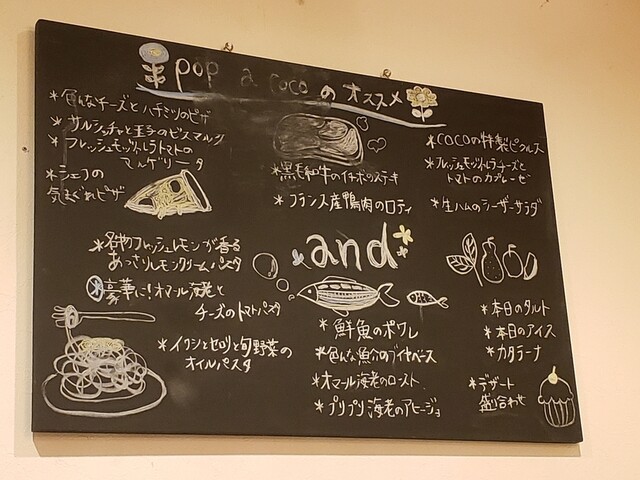 pop a coco のオススメ
*色んなチーズとハチミツのピザ
*サルシッチャと玉子のビスマルク
*フレッシュモッツァレラトマトの
マルゲリータ
*シェフの
気まぐれピザ
*名物フレッシュレモンが香る
あっさりレモンクリームパスタ
*豪華に!オマール海老と
チーズのトマトパスタ
*イワシとセロリと旬野菜の
オイルパスタ
*黒毛和牛のイチボのステーキ
*フランス産鴨肉のロティ
and
*鮮魚のポワレ
*色んな魚介のブイヤベース
*オマール海老のロースト
*プリプリ海老のアヒージョ
*COCOの特製ピクルス
*フレッシュモッツァレラチーズと
トマトのカプレーゼ
*生ハムのシーザーサラダ
*本日のタルト
*本日のアイス
*カタラーナ
*デザート
盛り合わせ